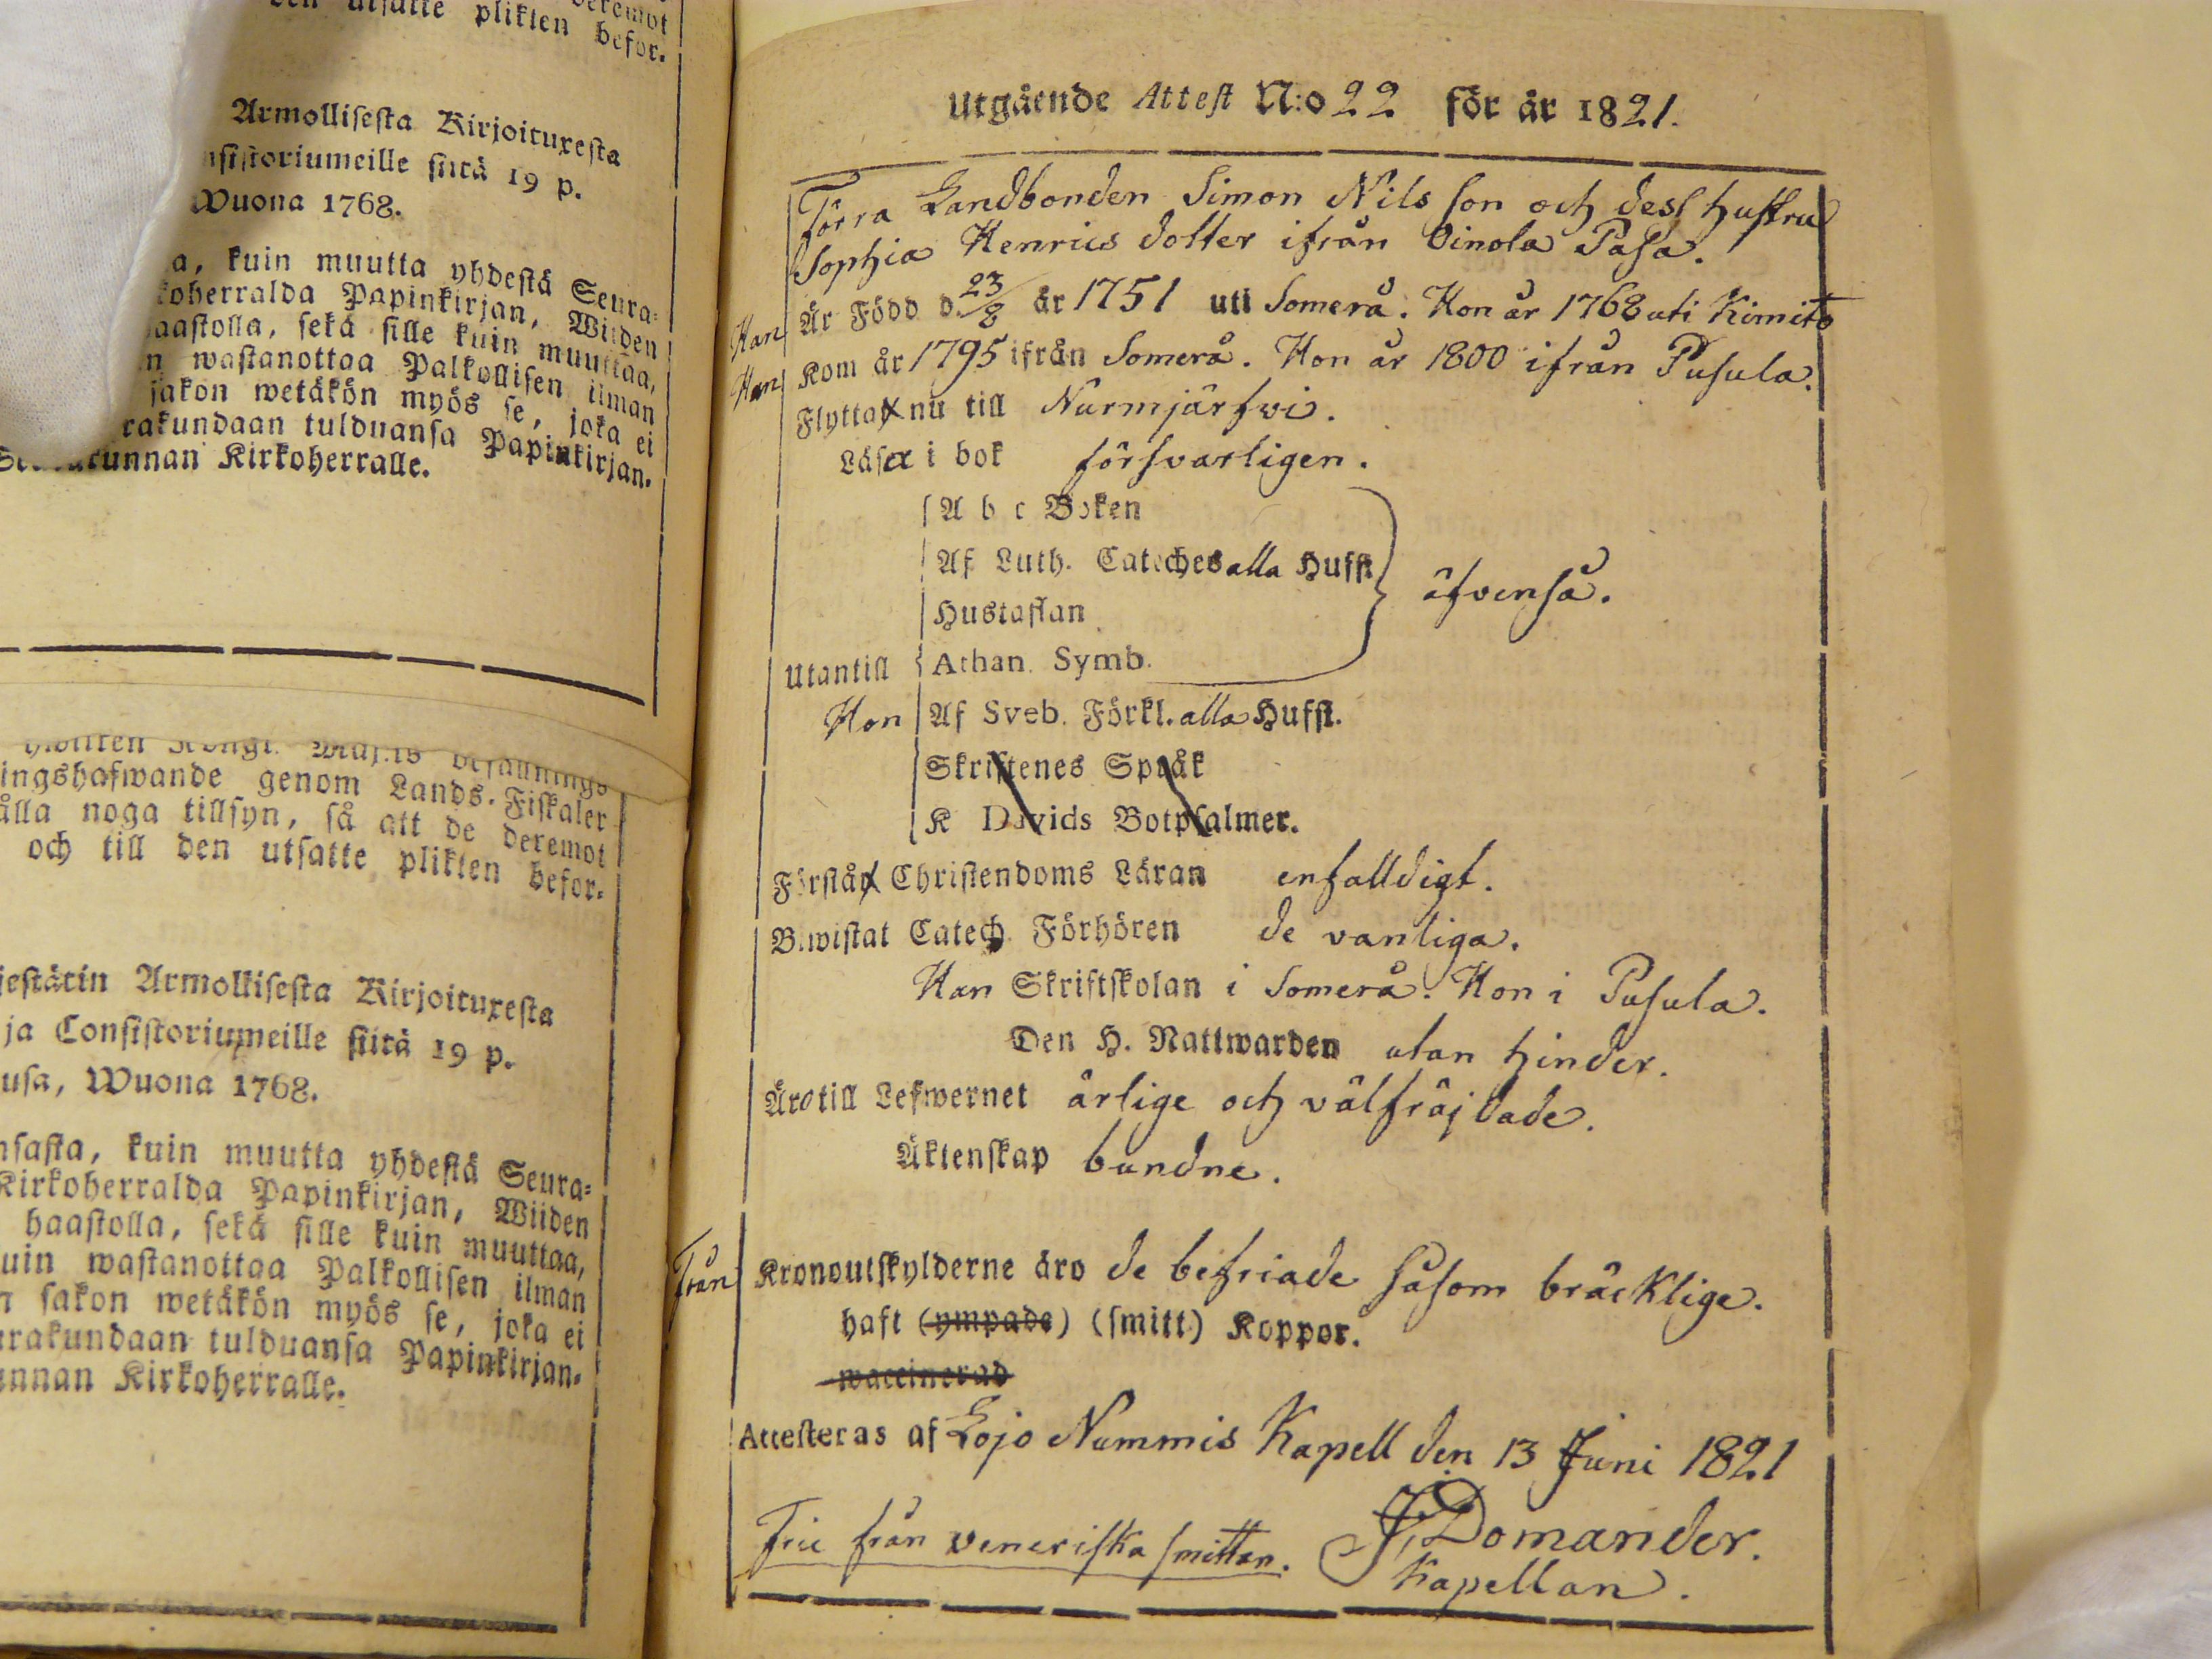 utsatte plikten befor.
Armollisesta Kirjoituxesta
siitä 19 p.
Wuona 1768.
kuin muutta yhdestä Seura-
Papinkirjan, Wiiden
sekä sille kuin muuttaa,
wastanottaa Palkollisen ilman
sakon wetäkön myös se, joka ei
tulduansa Papinkirjan.
Kirkoherralle.
ingshafwande genom Lands-Fiskaler
noga tillsyn, så att de deremot
och till den utsatte plikten befor.
Armollisesta Kirjoituxesta
ja Consistoriumeille siitä 19 p.
Wuona 1768.
kuin muutta yhdestä Seura-
Kirkoherralda Papinkirjan, Wiiden
haastolla, sekä sille kuin muuttaa,
wastanottaa Palkollisen ilman
sakon wetäkön myös se, joka ei
tulduansa Papinkirjan.
Kirkoherralle.
Utgående Attest N:o 22 för år 1821.
Förra Landbonden Simon Nils son och dess hustru
Sophia Henrics dotter ifrån Oinola Pasa.
Han Är Född d 23/8 år 1751 uti Somerå. Hon år 1768 uti Kimito
Han Kom år 1795 ifrån Somerå. Hon år 1800 ifrån Pusula.
Flytta nu till Nurmjärfvi.
Läsa i bok försvarligen.
A b c Boken
Af Luth. Cateches alla Hufst
Hustaflan äfvenså.
Utantill Athan. Symb.
Hon Af Sveb. Förkl. alla Hufst.
Skriftenes Språk
K Davids Botpsalmer.
Förstå Christendoms Läran enfalldigt.
Biwistat Catech. Förhören de vanliga.
Han Skriftskolan i Somerå. Hon i Pusula.
Den H. Nattwarden utan hinder.
Äro till Lefwernet ärlige och välfräjdade.
Äktenskap bundne.
Från Kronoutskylderne äro de befriade såsom bräcklige.
haft (ympade) (smitt) Koppor.
waccinerad
Attesteras af Lojo Nummis Kapell den 13 Juni 1821
Frie från veneriska smittan. J. Domander.
Kapellan.